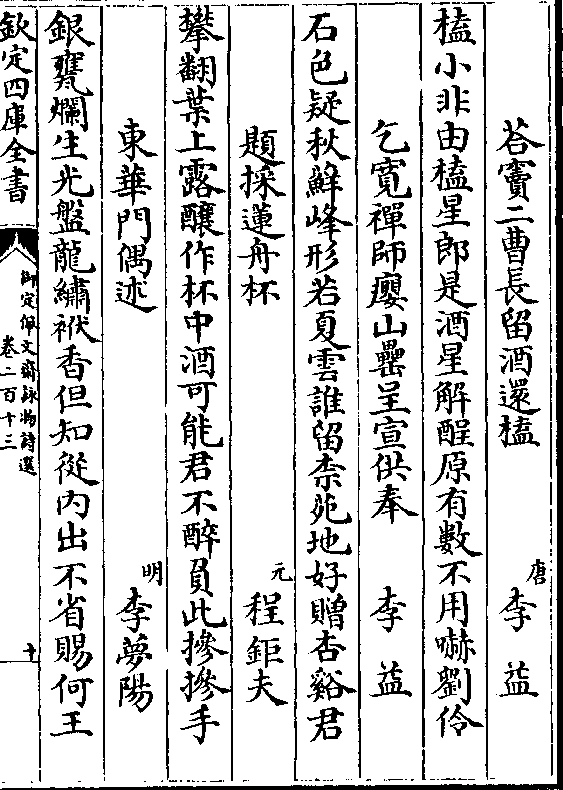 荅竇二曹長留酒還榼　唐李益
榼小非由榼星郎是酒星解酲原有數不用嚇劉伶
乞寛禪師癭山罍呈宣供奉　李益
石色疑秋蘚峰形若夏雲誰留柰苑地好贈杏谿君
題採蓮舟杯　元程鉅夫
攀翻葉上露釀作杯中酒可能君不醉負此摻摻手
東華門偶述　明李夢陽
銀甕爛生光盤龍繡袱香但知從内出不省賜何王
欽定四庫全書
御定佩文齋詠物詩選
卷二百十三
十